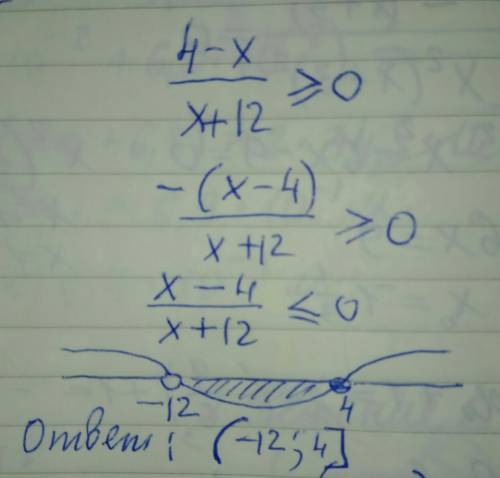 4-x
x+12 ⩾ 0
-(x-4)
x+12 ⩾ 0
x-4
x+12 ⩽ 0
-12 4
Ответ: (-12; 4]